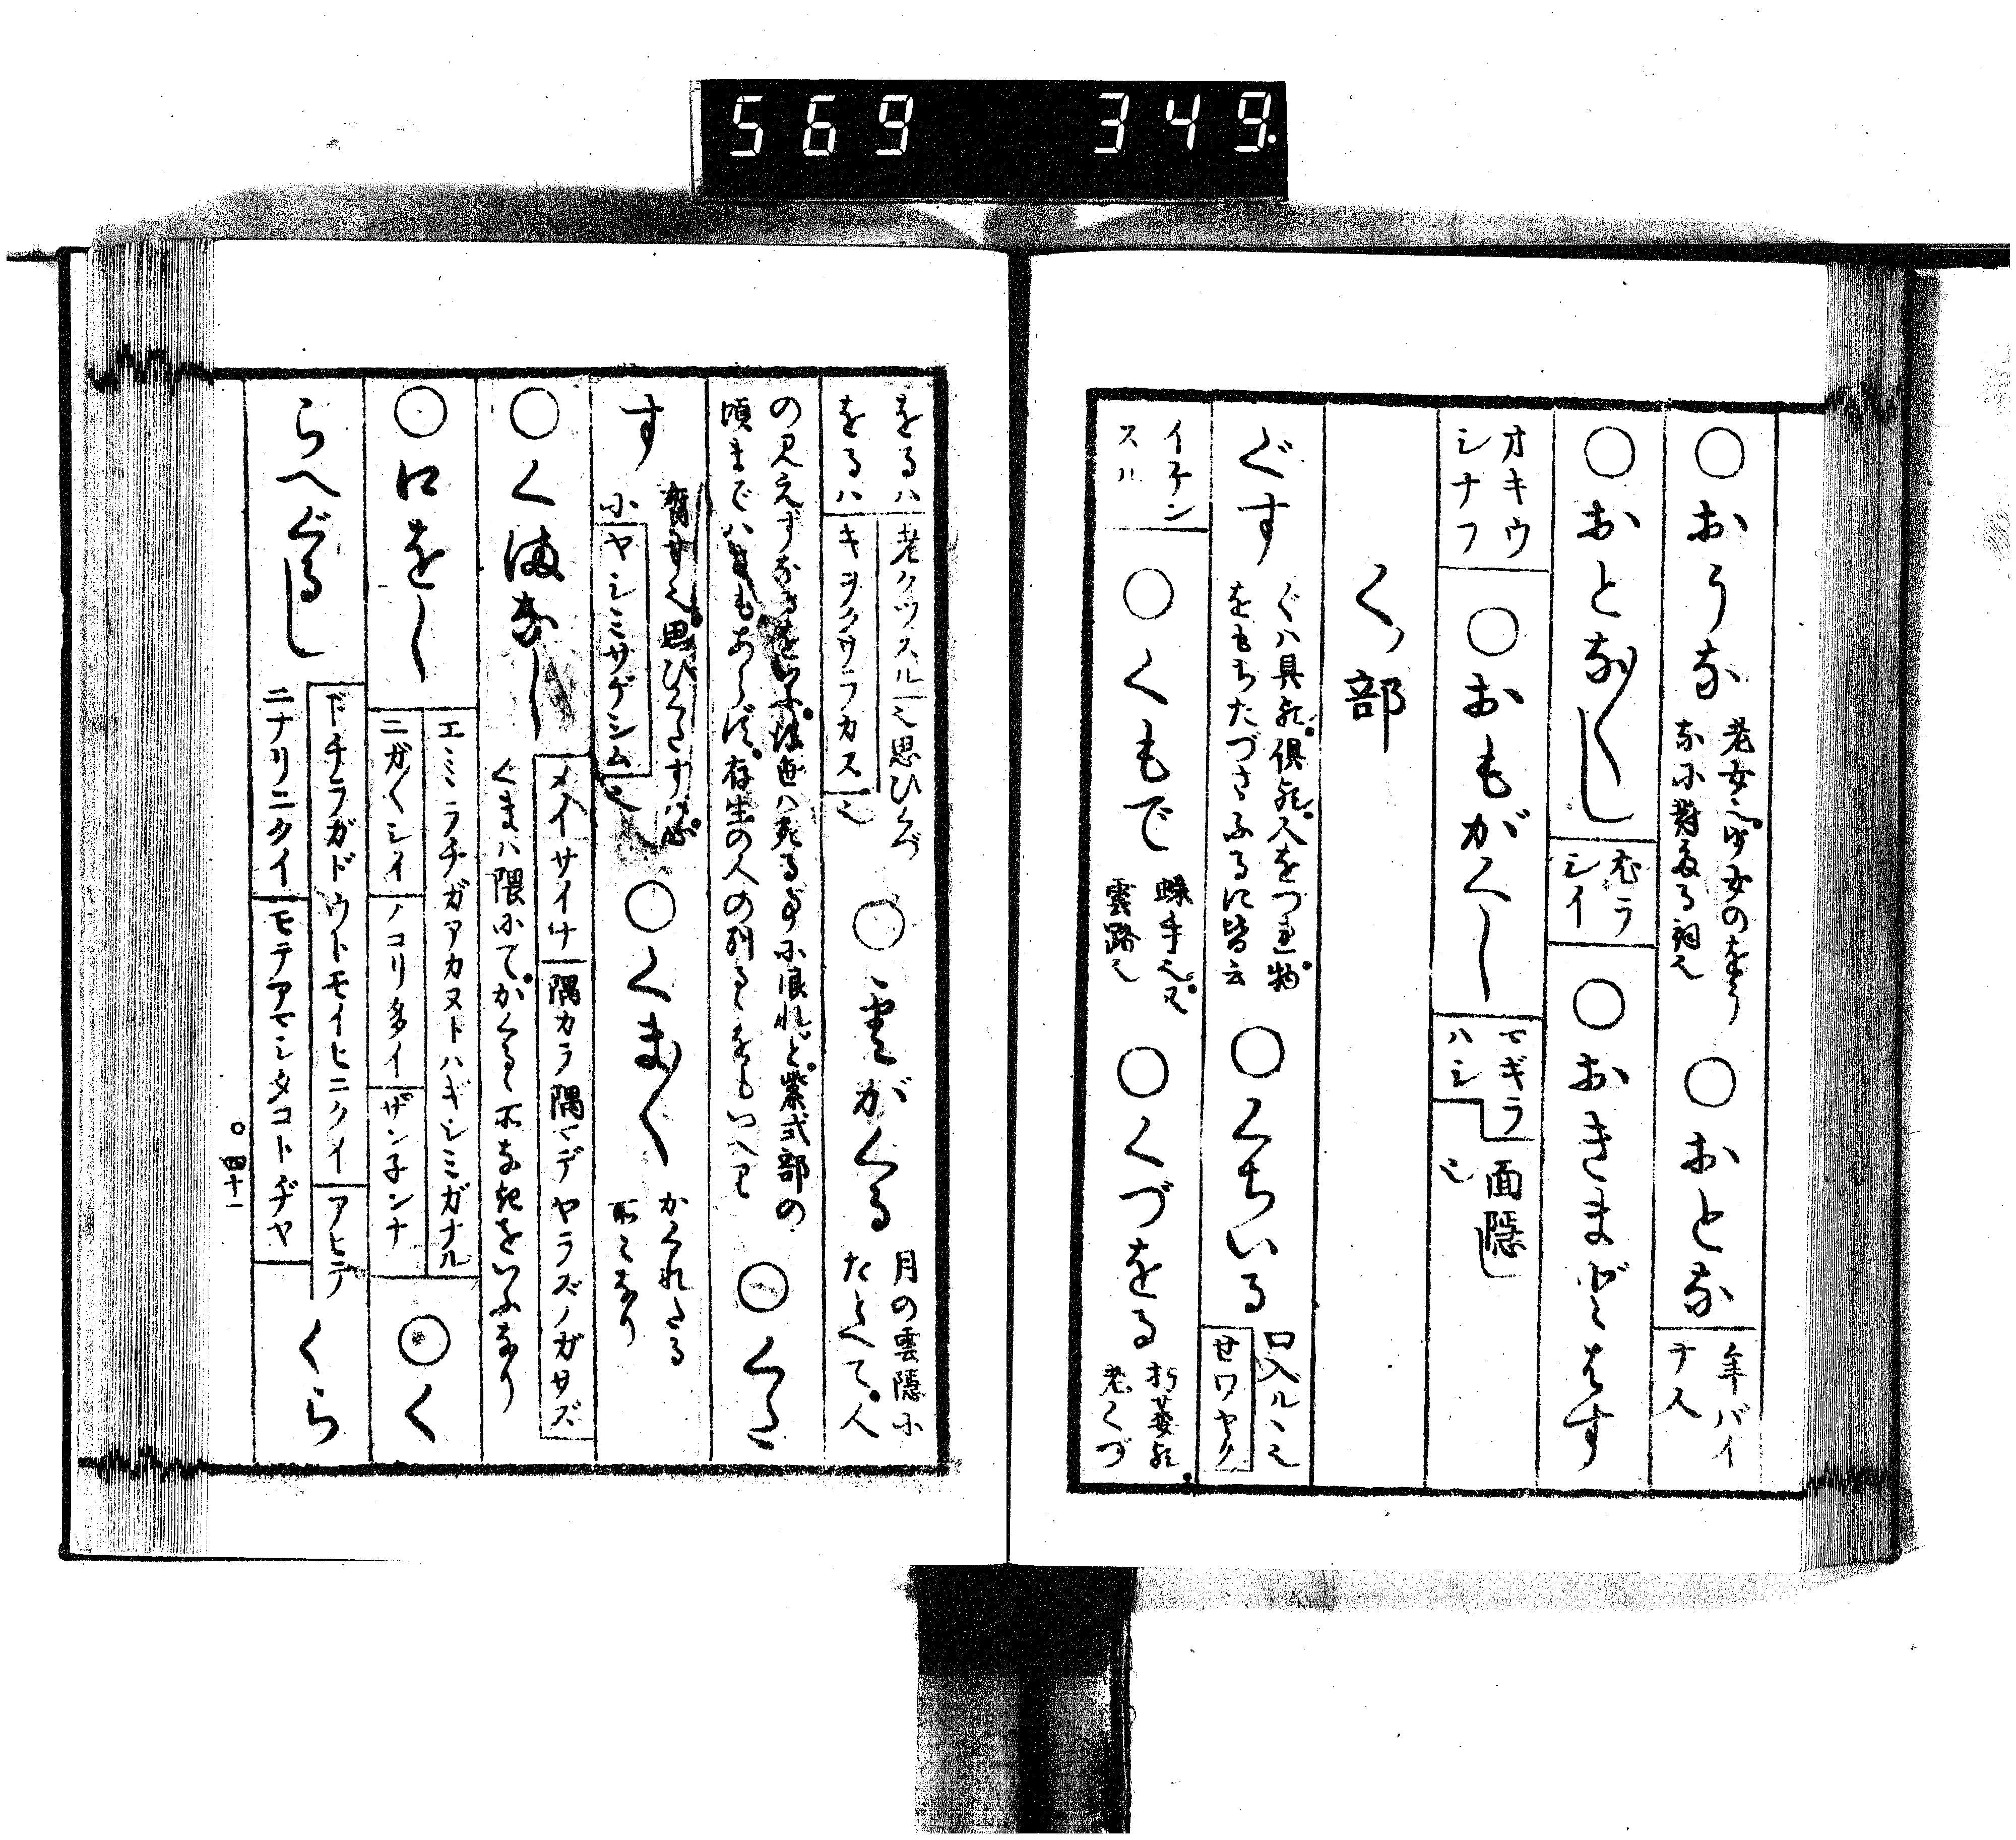 569 349.
○おうな 老女也。少女のをう
なに対する詞也 ○おとな 年バイ
ナ人
○おとな〳〵し 老ラ
シイ ○おきまどはす
オキウ
シナフ ○おもがくし マギラ
ハシ 也 面隠し
く部
ぐす ぐハ具也。倶也。人をつれ物。
をもちたづさふるに皆云 ○くちいる 口入ル也
セワヤク
イケン
スル ○くもで 蛛手也。又。
雲路也 ○くづをる 朽萎也。
老くづ
をるハ 老クツスル也思ひくづ
をるハ キヲクサラカス也 ○雲がくる 月の雲隠に
たとへて。人
の見えずなるをいふ。後世ハ死る事に限れど。紫式部の
頃まではさもあらず。存生の人の別るゝをもいへり ○くた
す 腐す也。思ひくたすハ心
に ヤシミサゲシム也 ○くま〳〵 かくれたる
所々なり
○くまなし メイサイナ 隅カラ隅マデヤラズノガサズ
くまハ隈にて。かくるゝ所なきをいふなり
○口をし エミミラチガアカヌトハギシミガナル
ニガ〳〵シイ ノコリ多イ ザンネンナ ○く
らべぐるし ドチラガドウトモイヒニクイ アヒテ
ニナリニクイ モテアマシタコトヂヤ くら
○四十一